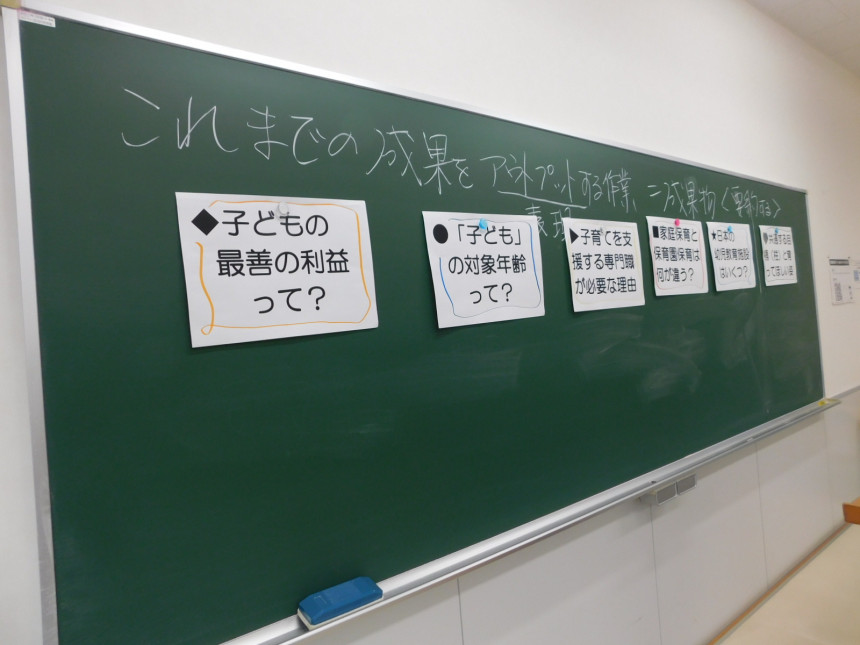 これまでの成果をアウトプットする作業 =成果物<要約する>
表現
◆子どもの
最善の利益
って?
●「子ども」
の対象年齢
って?
▶子育てを支
援する専門職
が必要な理由
■家庭保育と
保育園保育は
何が違う?
★日本の
幼児教育施設
はいくつ?
ってほしい姿